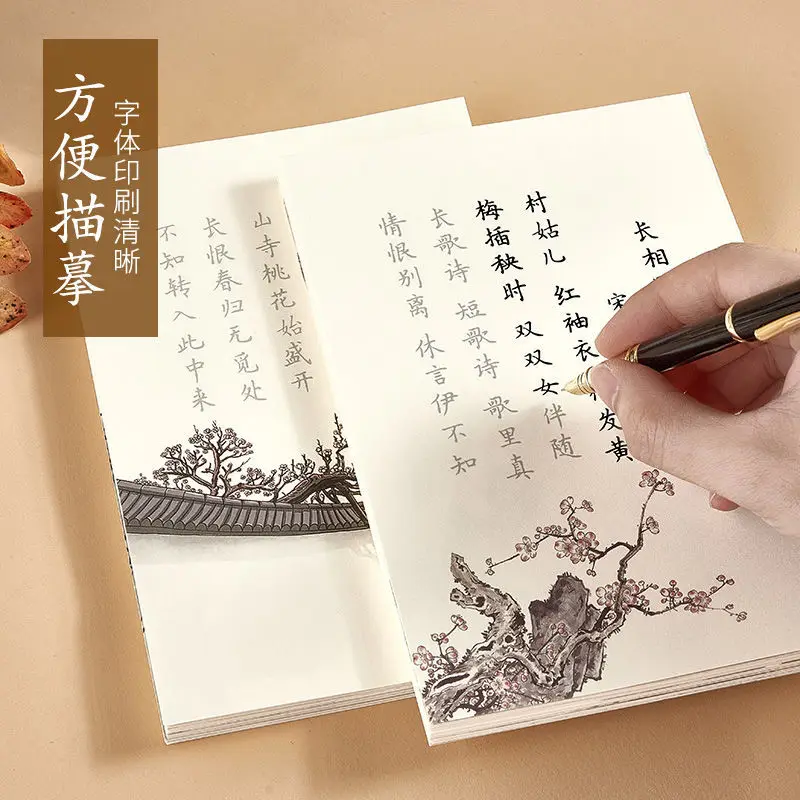 方便描摹
字体印刷清晰
长相
宋
村姑儿 红袖衣 发黄
梅插秧时 双双女伴随
长歌诗 短歌诗 歌里真
情恨别离 休言伊不知
山寺桃花始盛开
长恨春归无觅处
不知转入此中来